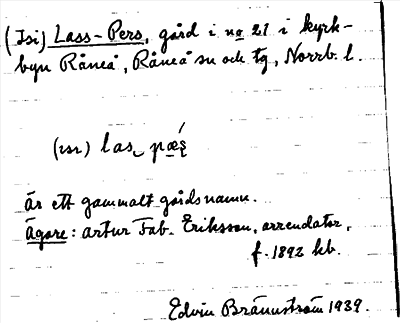 (Isi) Lass-Pers, gård i no 21 i kyrk-
byn Råneå, Råneå sn och tg, Norrb. l.
(ısı) las
är ett gammalt gårdsnamn.
Ägare: Artur Fab. Eriksson, arrendator,
f. 1892 hb.
Edvin Brännström 1939.